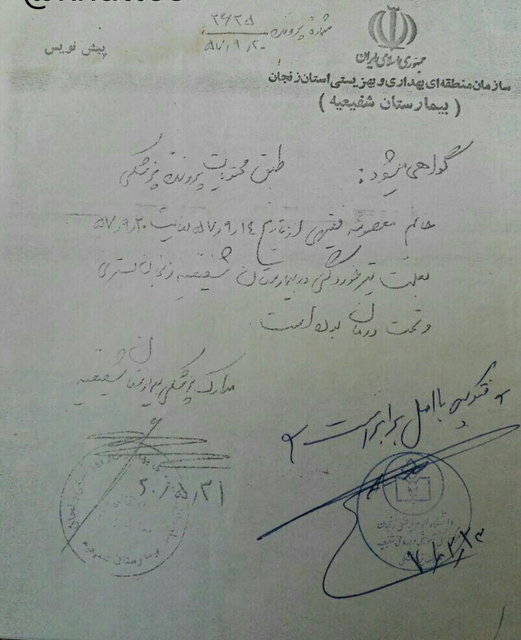 شماره پرونده ۳۶۳۵۸
۵۷٫۹٫۲۰
پیش نویس
جمهوری اسلامی ایران
سازمان منطقه‌ای بهداری و بهزیستی استان زنجان
( بیمارستان شفیعیه )
گواهی میشود : طبق محتویات پرونده پزشکی
خانم معصومه فقیهی از تاریخ ۵۷٫۹٫۱۴ لغایت ۵۷٫۹٫۲۰
بعلت تیر خوردگی در بیمارستان شفیعیه زنجان بستری
و تحت درمان بوده است
مدارک پزشکی بیمارستان شفیعیه
فتوکپی با اصل برابر است